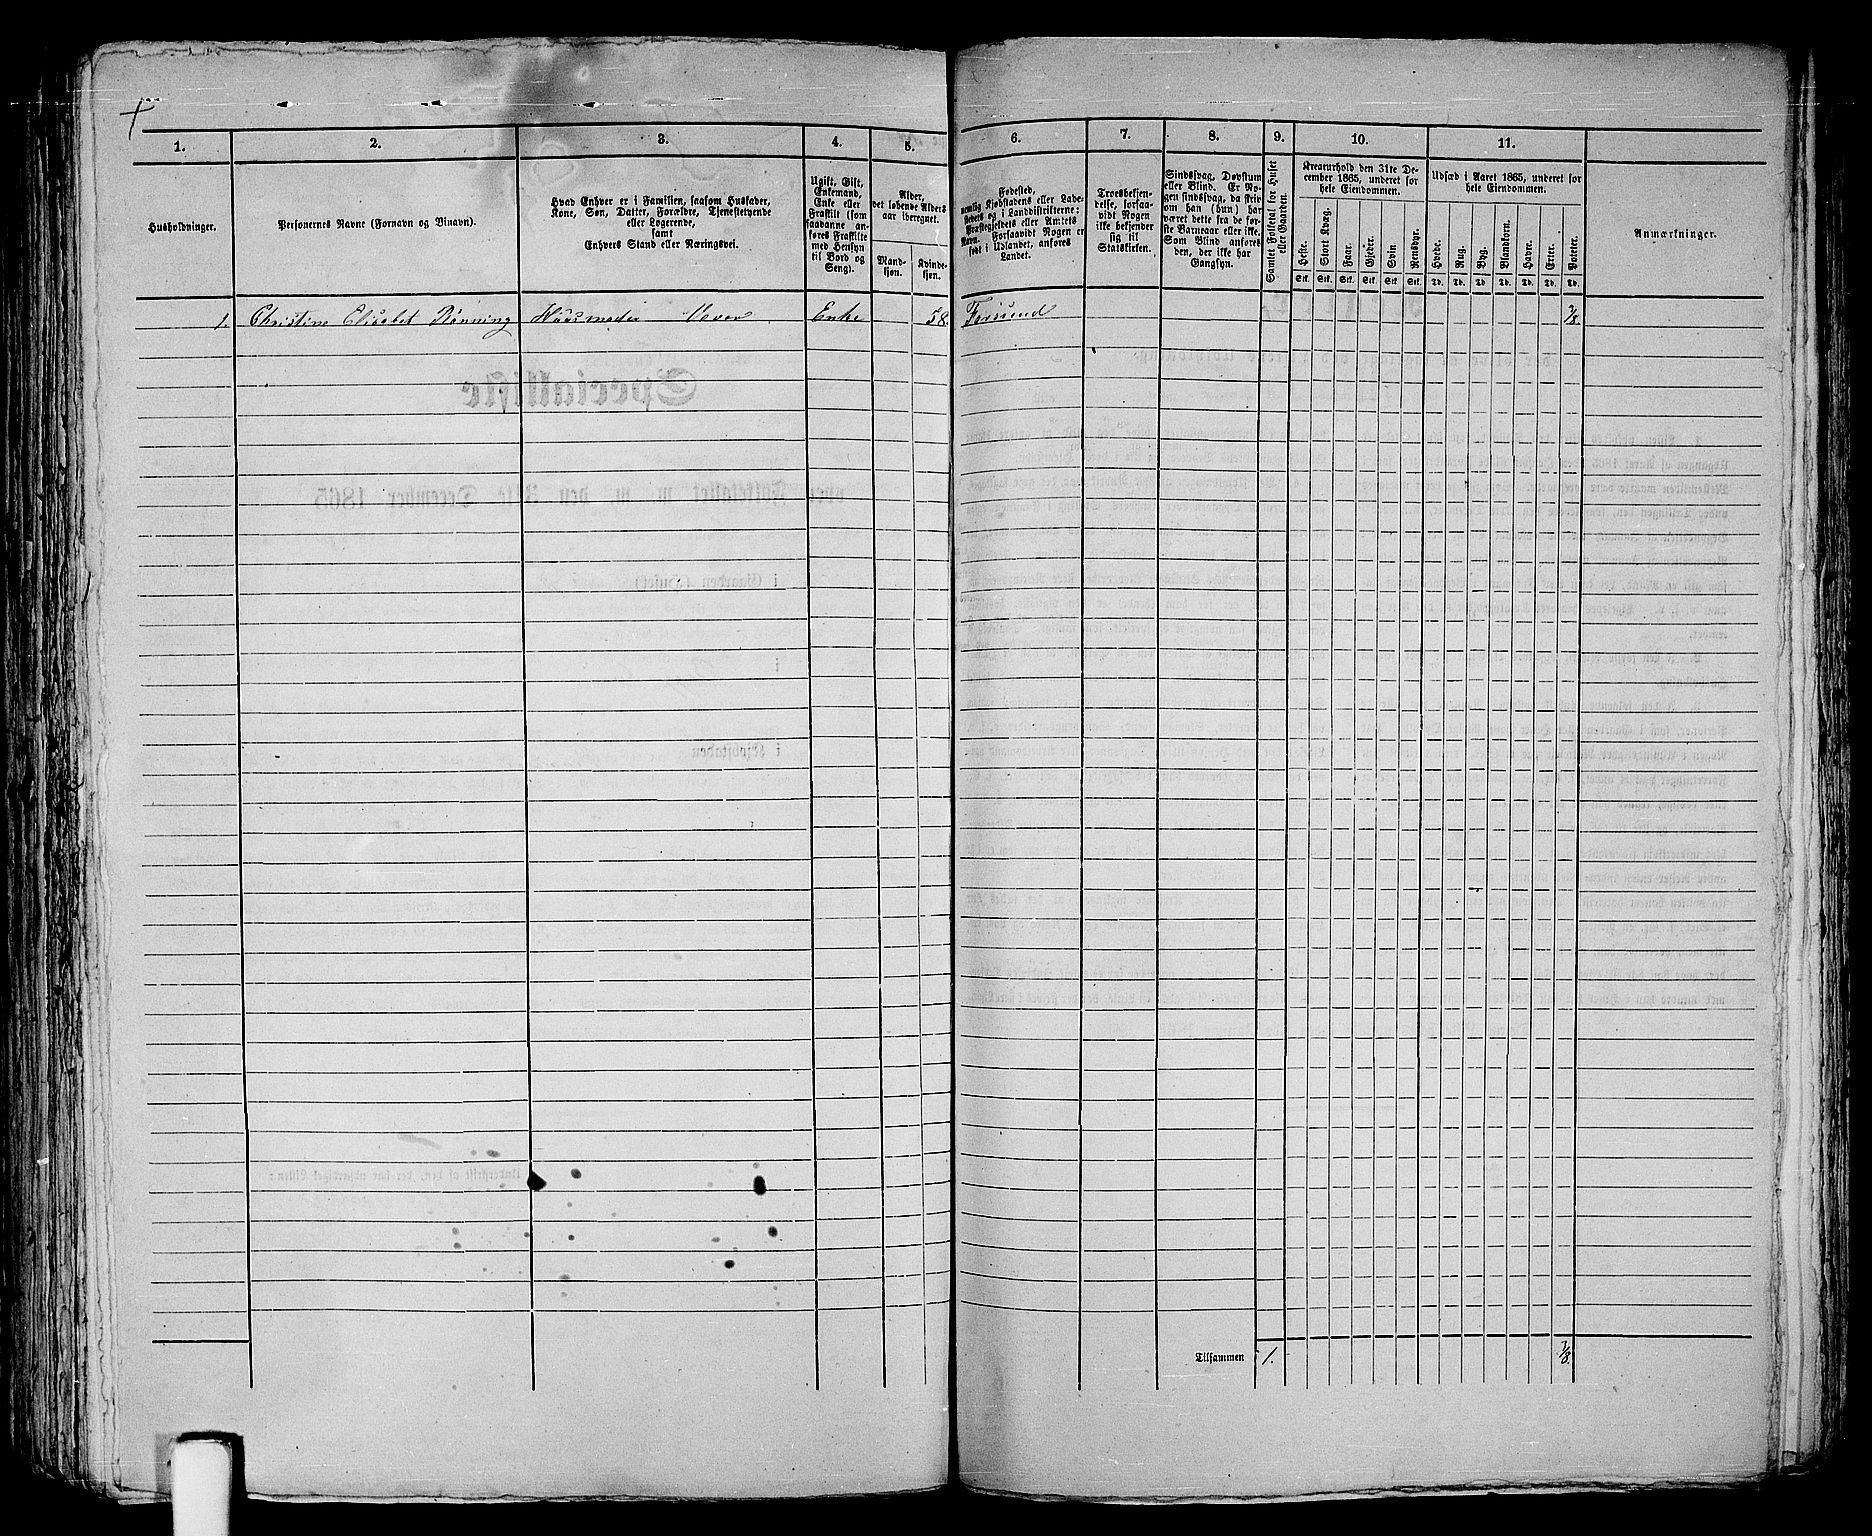 1.
2.
3.
4.
5.
6.
7.
8.
9.
10.
11.
Husholdninger.
Personernes Navne (Fornavn og Binavn).
Hvad Enhver er i Familien, saasom Husfader,
Kone, Søn, Datter, Forældre, Tjenestetyende
eller Logerende,
samt
Enhvers Stand eller Næringsvei.
Ugift, Gift,
Enkemand,
Enke eller
Fraskilt (som
saadanne an-
føres Fraskilte
med Hensyn
til Bord og
Seng).
Alder,
det løbende Alders-
aar iberegnet.
Mand-
kjøn.
Kvinde-
kjøn.
Fødested,
nemlig Kjøbstadens eller Lade-
stedets og i Landdistrikterne:
Præstegjeldets eller Amtets
Navn. Forsaavidt Nogen er
født i Udlandet, anføres
Landet.
Troesbekjen-
delse, forsaa-
vidt Nogen
ikke bekjender
sig til
Statskirken.
Sindssvag, Døvstum
eller Blind. Er No-
gen sindssvag, da skriv
om han (hun) har
været dette fra de før-
ste Barneaar eller ikke.
Som Blind anføres
den, der ikke har
Gangsyn.
Samlet Folketal for Huset
eller Gaarden.
Kreaturhold den 31te De-
cember 1865, underet for
hele Eiendommen.
Heste.
Stort Kvæg.
Faar.
Gjeder.
Svin
Rensdyr.
Stk. Stk. Stk. Stk. Stk Stk.
Udsæd i Aaret 1865, underet for
hele Eiendommen.
Hvede.
Rug.
Byg.
Blandkorn.
Havre.
Erter.
Poteter.
Td. Td. Td Td. Td. Td. Td.
Anmærkninger.
1. Christine Elisabet Rønning Huusmoder Væver Enke 58. Farsund
Tilsammen 1.